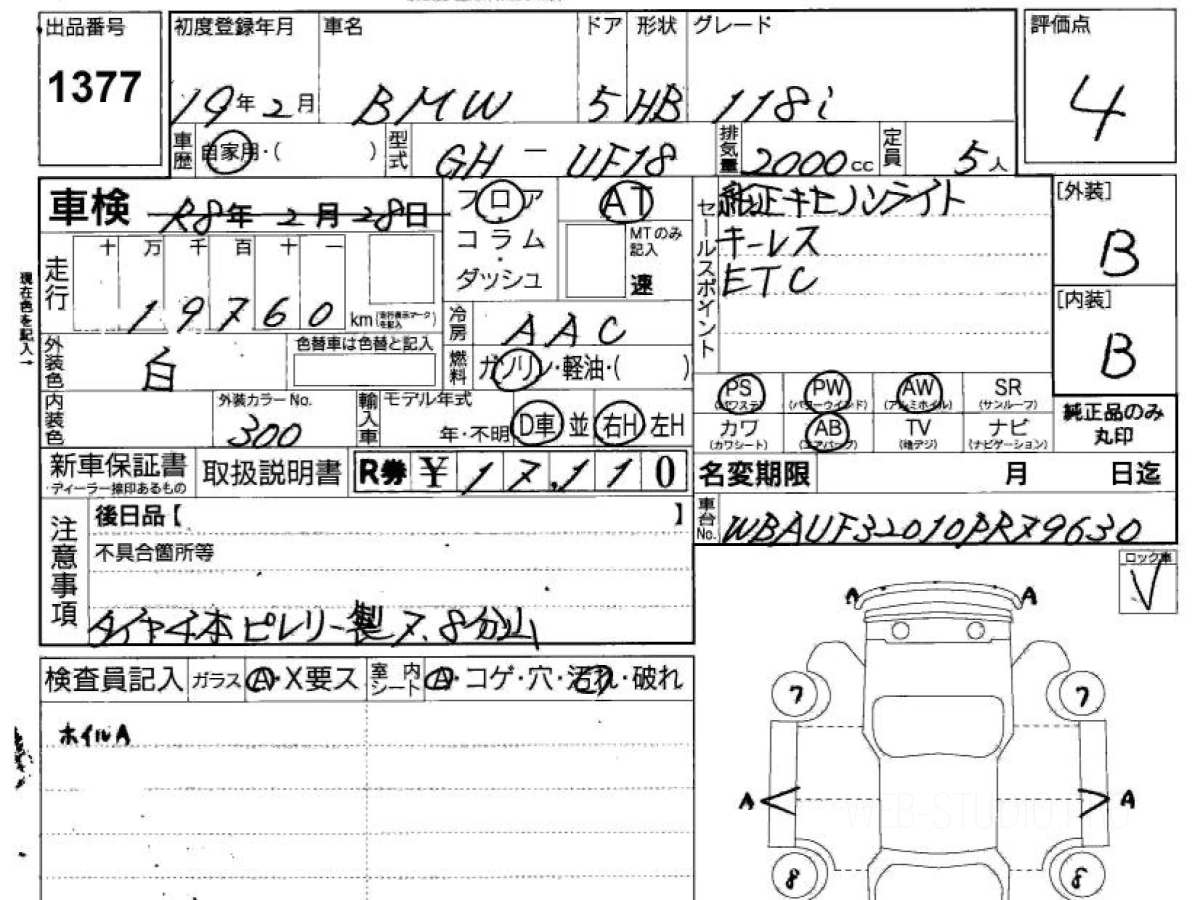 出品番号
1377
初度登録年月 車名 ドア 形状 グレード
19年2月 BMW 5 HB 118i
車歴 自家用・( ) 型式 GH-UF18 排気量 2000cc 定員 5人
評価点
4
車検 R8年2月28日
フロア
コラム
・
ダッシュ
AT
MTのみ記入
速
セールスポイント
純正キセノンライト
キーレス
ETC
[外装]
B
[内装]
B
現在色を記入→
走行 十万千百十一
19760 km
冷房 AAC
外装色 白 色替車は色替と記入
燃料 ガソリン・軽油・( )
内装色 外装カラーNo. 300
輸入車 モデル年式 年・不明 D車 並 右H 左H
PS (パワステ) PW (パワーウインド) AW (アルミホイル) SR (サンルーフ)
カワ (カワシート) AB (エアバック) TV (地デジ) ナビ (ナビゲーション)
純正品のみ
丸印
新車保証書
ディーラー捺印あるもの
取扱説明書 R券 ¥17,110
名変期限 月 日迄
車台No. WBAUF32010PR79630
注意事項
後日品【 】
不具合箇所等
タイヤ4本ピレリー製7.8分山
ロック車
V
検査員記入 ガラス A・X要ス 室内シート A・コゲ・穴・汚れ・破れ
ホイルA
A A
7 7
A A
8 8
WEB-STUDIO.PRO